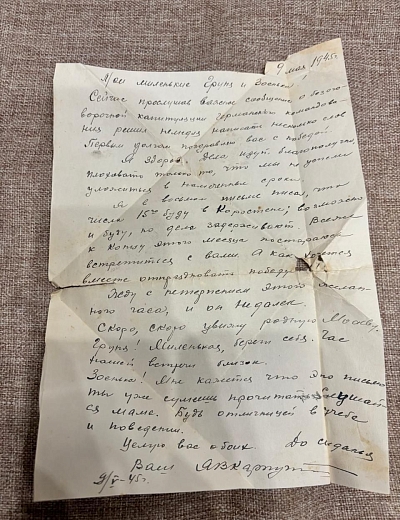 9 мая 1945г.
Мои миленькие Фруня и Зоенька!
Сейчас прослушав важное сообщение о безого-
ворочной капитуляции германского командова-
ния решил немедля написать несколько слов
Первым долгом поздравляю вас с победой!
Я здоров. Дела идут благополучно,
плоховато только то, что мы не успели
уложиться в намеченные сроки.
Я в восьмом письме писал, что
числа 15го буду в Коростене, возможно
и буду, но дела задерживают. Всеже
к концу этого месяца постараюсь
встретиться с вами. А как хочется
вместе отпраздновать победу
Жду с нетерпением этого желан-
ного часа, и он недалек.
Скоро, скоро увижу родную Москву,
Фруня! Миленькая, береги себя. Час
нашей встречи близок.
Зоенька! Мне кажется что это письмо
ты уже сумеешь прочитать. Слушай-
ся маму. Будь отличницей в учебе
и поведении.
Целую вас обоих. До свидания
Ваш
9/V-45г.